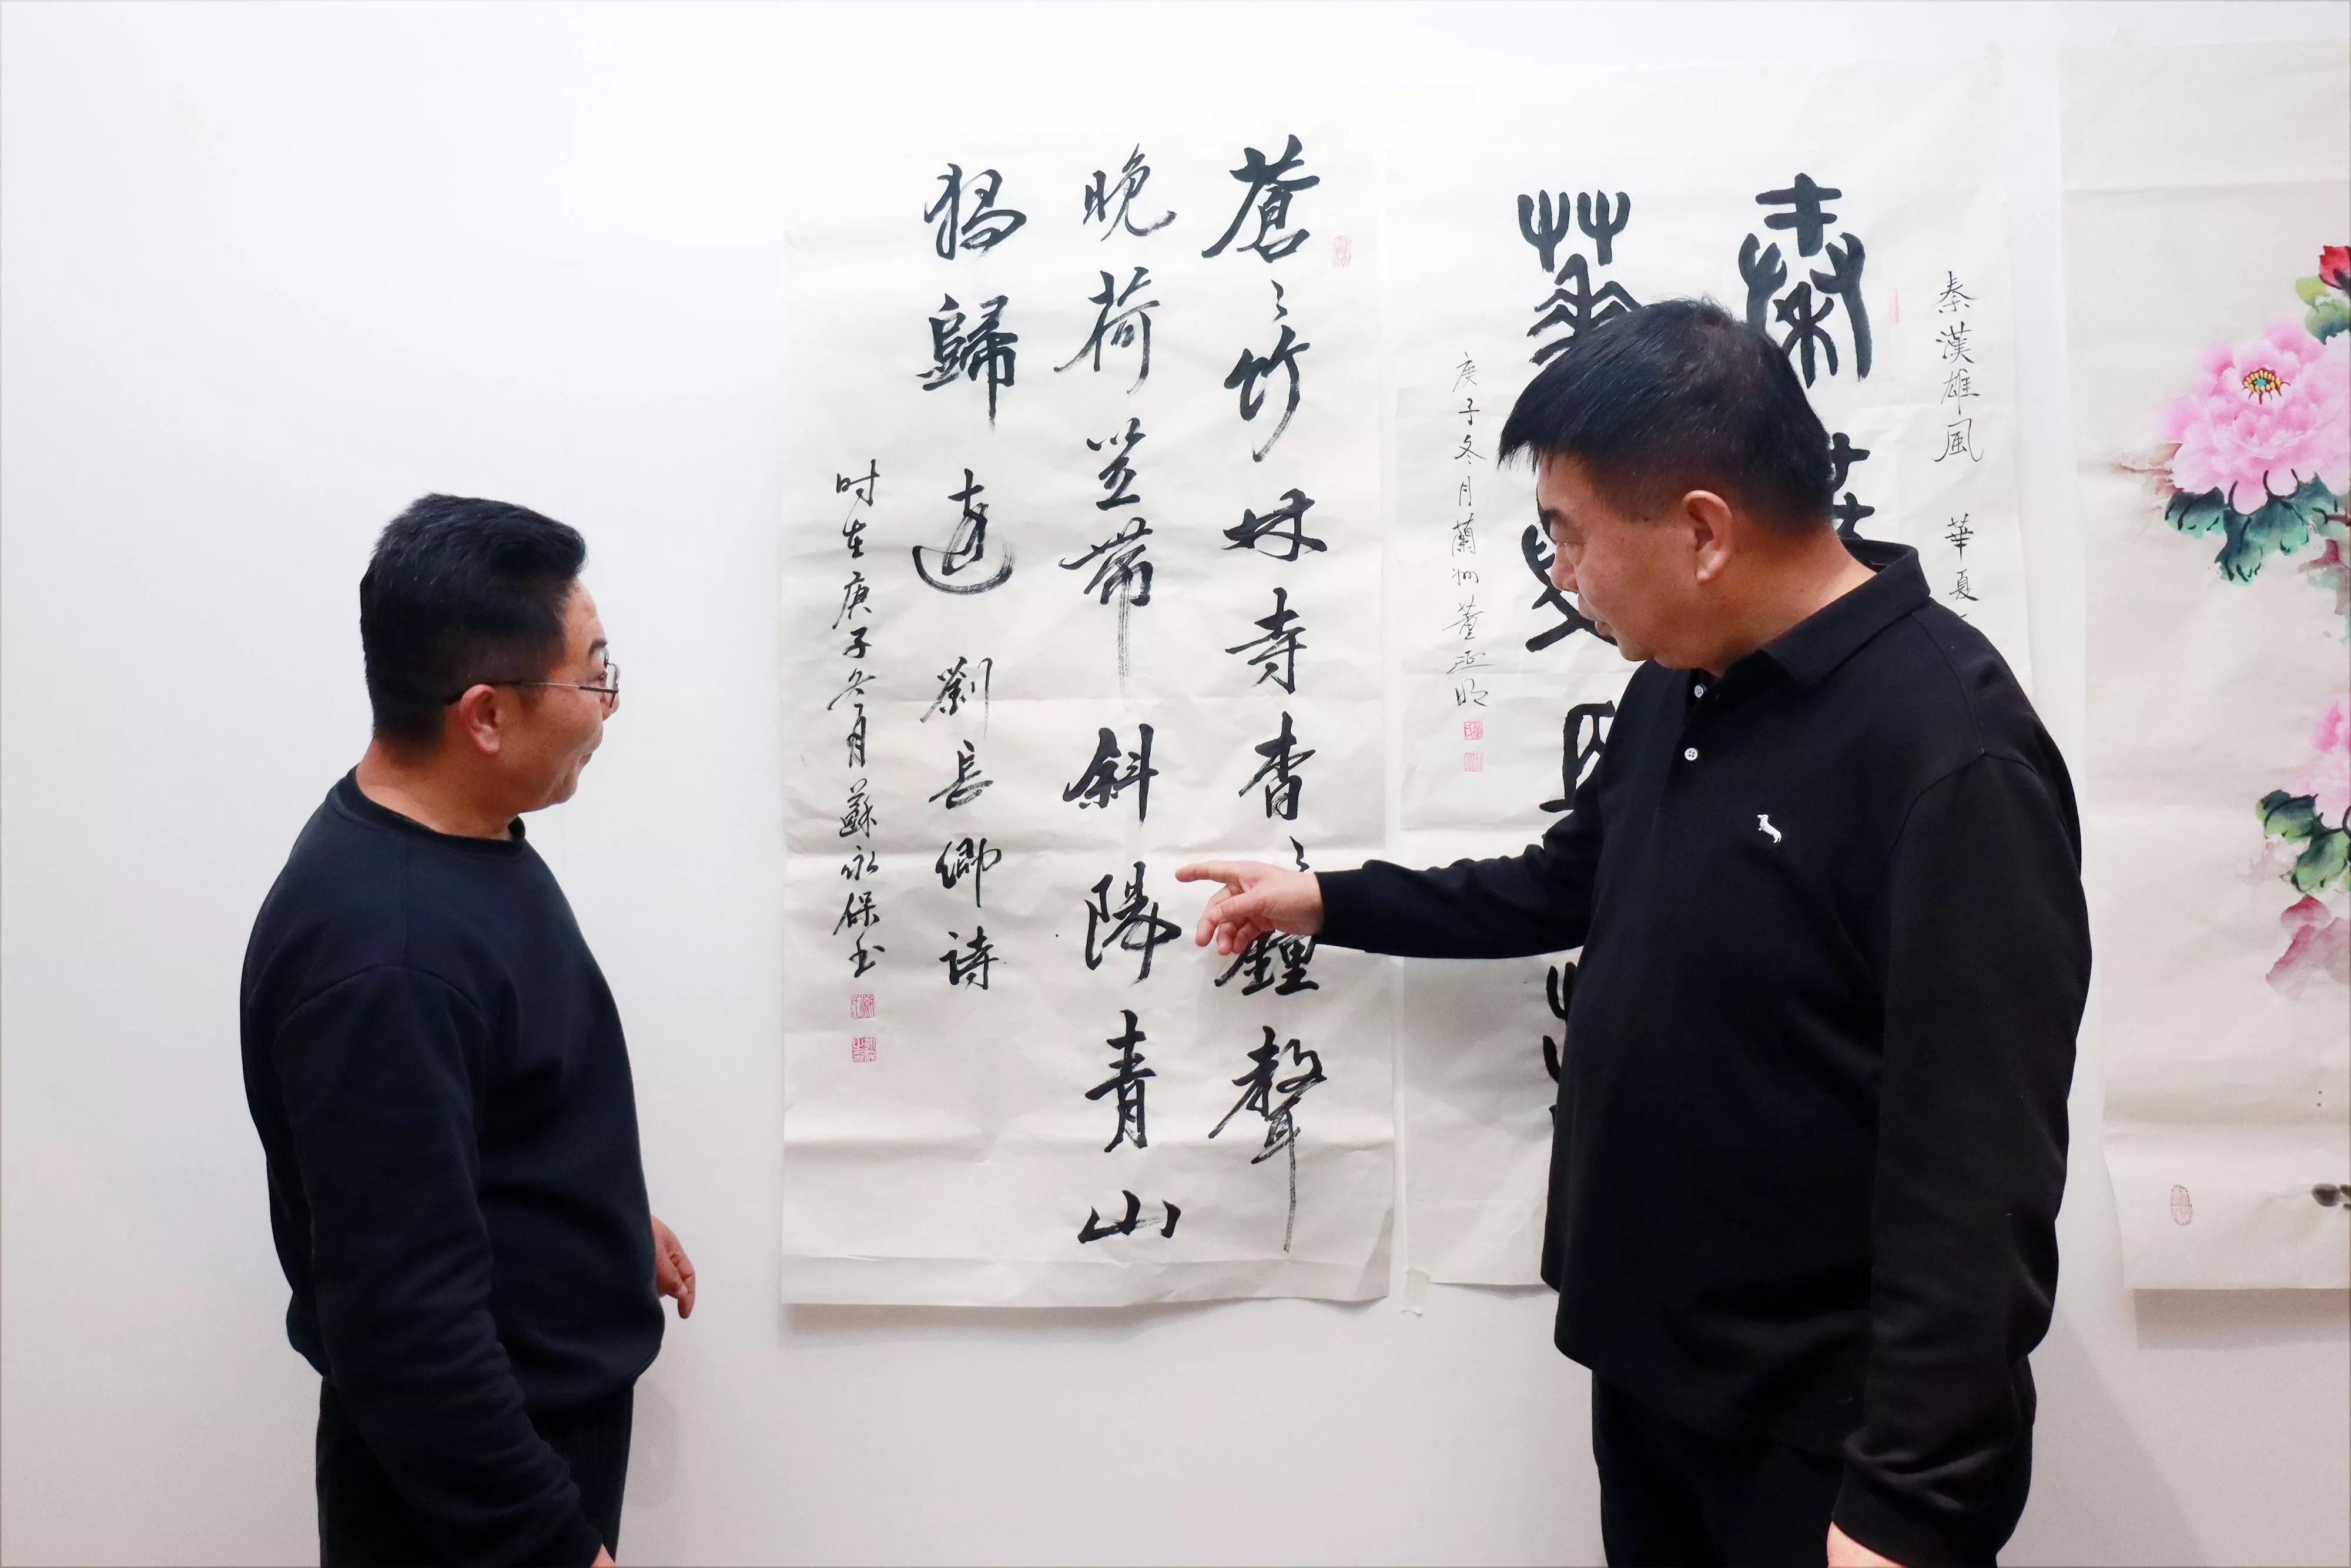 秦漢雄風 華夏
秦
華
庚子冬月蘭州董
蒼々竹林寺杳々鐘聲
晚荷笠帶斜陽青山
獨歸遠 劉長卿詩
时在庚子冬月蘇永保书